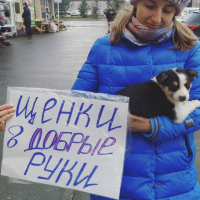 ЩЕНКИ
В ДОБРЫЕ
РУКИ